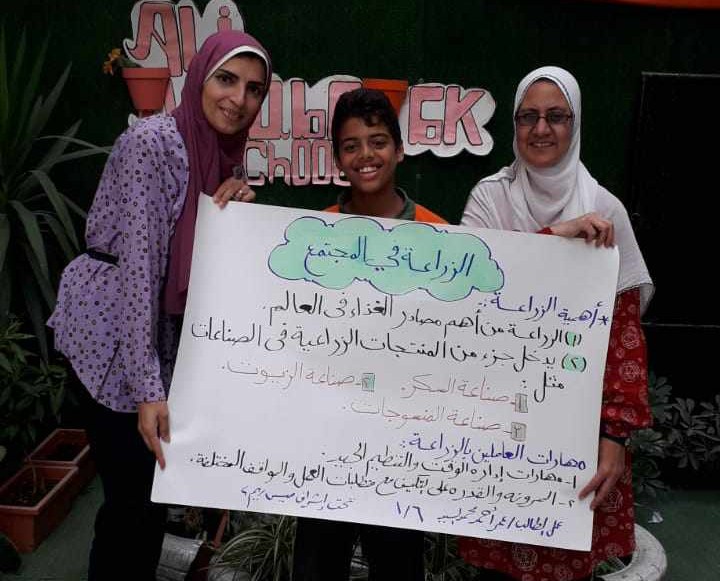 Ali
Mubarak
School
الزراعة في المجتمع
* أهمية الزراعة :-
(١) الزراعة من أهم مصادر الغذاء فى العالم.
(٢) يدخل جزء من المنتجات الزراعية فى الصناعات
مثل :
١- صناعة السكر. ٢- صناعة الزيوت
٣- صناعة المنسوجات.
مهارات العاملين بالزراعة :
١- مهارات إدارة الوقت والتنظيم الجيد.
٢- المرونة والقدرة على التكيف مع متطلبات العمل والمواقف المختلفة.
عمل الطالب / عمر أحمد محمد السيد ١/٦ تحت إشراف ميس/ريم